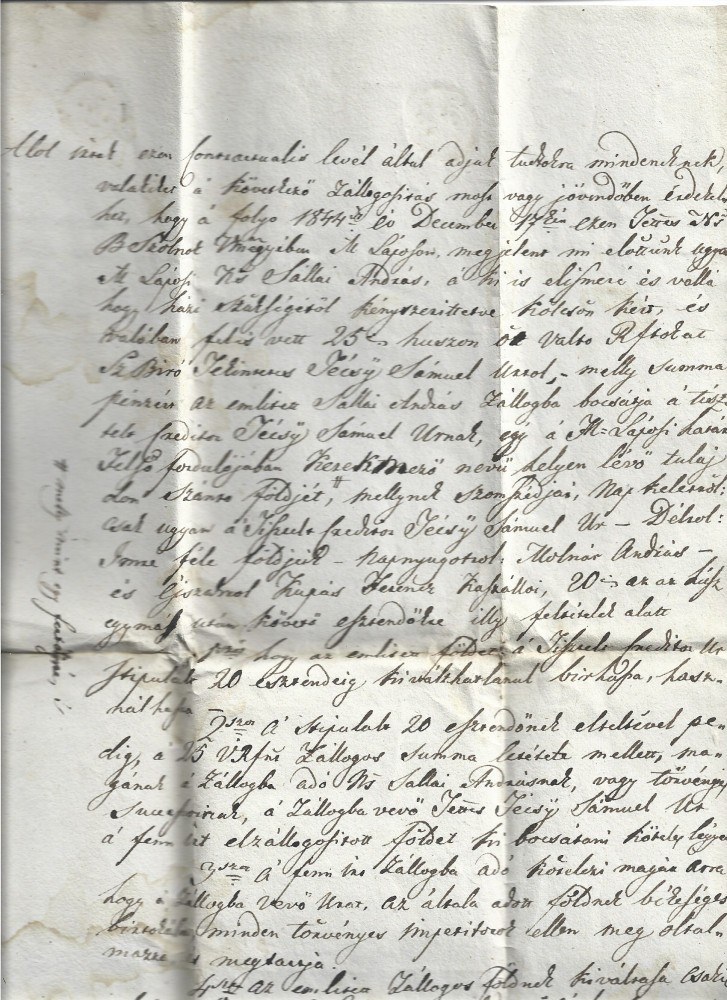 Alol irtak ezen Contractualis levél által adjuk tudtokra mindeneknek,
valakiket à következö Zállogosirás most vagy jövendöben érdekel-
het, hogy à folyo 1844ik év December 17kén ezen Tettes Ns
B Szolnok Vmegyiben M Láposon, megjelent mi elöttünk ugyan
M Láposi Ns Sallai András, à ki is elismeré és vallá
hogy házi szükségétöl kényszerittetve kölcsön kért, és
valóban fel is vett 25= huszon öt valto Rftokat
Sz Biró Tekintetes Técsÿ Sámuel Urtol,- melly summa
pénzért az emlitett Sallai András Zállogba bocsátja à tisz-
telt Creditor Técsÿ Sámuel Urnak, egÿ à M=Láposi határ
Felsö fordulójában Kerekmezö nevü helyen lévö tulaj
don szánto földjét,# mellynek szomszédjai, Napkeletröl:
csak ugyan à Tisztelt Creditor Técsÿ Sámuel Ur – Délröl:
Imre féle földjük – Napnyugotrol: Molnár András –
és Éjszakrol Kupás Ferencz Kaszálloi, 20= az az husz
egymás után követö esztendökre illy feltételek alatt
1ször hogy az emlitett földet à Tisztelt Creditor Ur
stipulált 20 esztendeig kiválthatlanul birhassa, hasz-
nálhassa
2szor À stipulált 20 esztendönek elteltével pe-
dig, à 25 VRfrt Zállogos summa letétele mellett, ma-
gának à Zállogba adó Ns Sallai Andrásnak, vagy törvényes
Successorinak, à Zállogba vevö Tettes Técsÿ Sámuel Ur
à fenn irt elzállogositott földet ki bocsátani köteles légyen
3szor À fenn irt Zállogba adó kötelezi magát arra
hogy à Zállogba vevö Urat, az általa adott földnek békeséges
birtokában minden törvényes impetitorok ellen meg oltal-
mazza és megtartja.
4szer az emlitett Zállogos földnek kiváltása csak
# melly mint egy